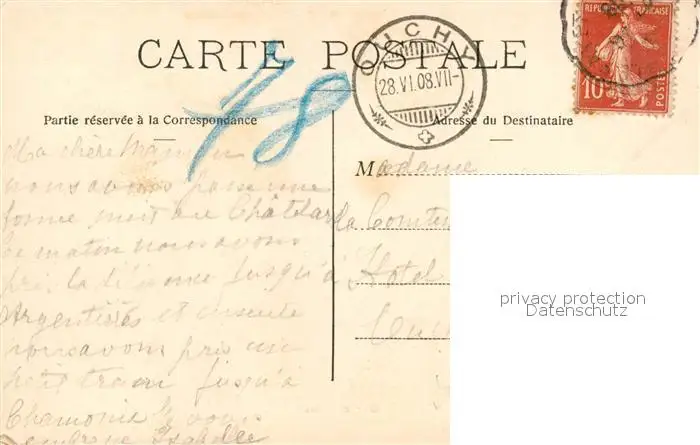 CARTE POSTALE
RÉPUBLIQUE FRANÇAISE
10
POSTES
OUCHY
28.VI.08.VII-
48
Partie réservée à la Correspondance
Adresse du Destinataire
Ma chère Maman
nous avons passé une
bonne nuit au Châtelard
ce matin nous avons
pris la diligence jusqu'à
Argentières et ensuite
nous avons pris un
petit train jusqu'à
Chamonix Je vous
embrasse Isabelle
Madame
la Comtes
Hotel
Ouc
privacy protection
Datenschutz